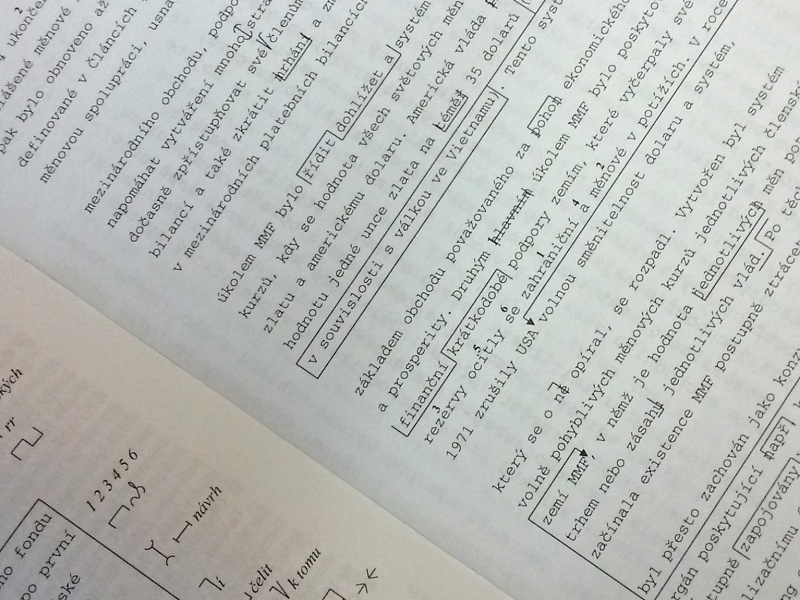 2
ukonče
lášené měnové
pak bylo obnoveno až
definované v článcích
měnovou spolupráci, usna
mezinárodního obchodu, podpo
napomáhat vytváření mnoho strá
dočasně zpřístupňovat své členům
bilancí a také zkrátit trhání a zm
v mezinárodních platebních bilancích
úkolem MMF bylo řídit dohlížet a systém
kurzů, kdy se hodnota všech světových měn
zlatu a americkému dolaru. Americká vláda
hodnotu jedné unce zlata na téměř 35 dolarů
v souvislosti s válkou ve Vietnamu. Tento syst
základem obchodu považovaného za pohon ekonomického
a prosperity. Druhým hlavním úkolem MMF bylo poskyto
finanční krátkodobé podpory zemím, které vyčerpaly své
rezervy ocitly se zahraniční a měnové v potížích. V roce
3 5 6 1 4 2
1971 zrušily USA volnou směnitelnost dolaru a systém,
který se o ně opíral, se rozpadl. Vytvořen byl systém
volně pohyblivých měnových kurzů jednotlivých člensk
zemí MMF, v němž je hodnota jednotlivých měn
trhem nebo zásahy jednotlivých vlád. Po těc
začínala existence MMF postupně ztrácet
byl přesto zachován jako konz
rgán poskytující např
tupně zapojovány
lizačnímu
ng
kých
rr
1 2 3 4 5 6
návrh
i
učelit
k tomu
no fondu
po první
ské